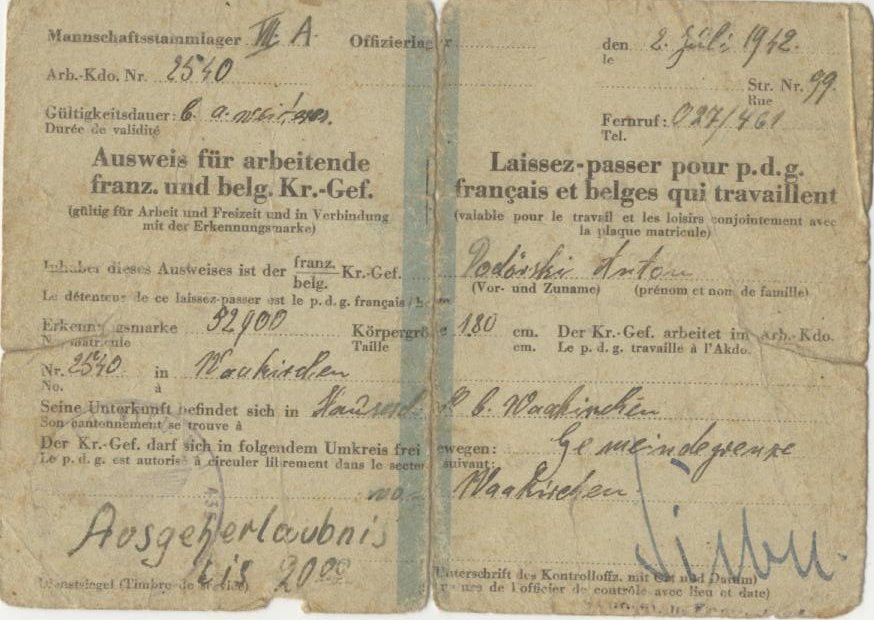 Mannschaftsstammlager VII A. Offizierlager
den 2. Juli 1942.
le
Arb.-Kdo. Nr. 2540
Str. Nr. 99.
Rue
Gültigkeitsdauer: b. a. weiteres.
Durée de validité
Fernruf: 027/461
Tel.
Ausweis für arbeitende
franz. und belg. Kr.-Gef.
(gültig für Arbeit und Freizeit und in Verbindung
mit der Erkennungsmarke)
Laissez-passer pour p.d.g.
français et belges qui travaillent
(valable pour le travail et les loisirs conjointement avec
la plaque matricule)
Inhaber dieses Ausweises ist der franz. belg. Kr.-Gef. Anton
(Vor- und Zuname) (prénom et nom de famille)
Le détenteur de ce laissez-passer est le p.d.g. français
Erkennungsmarke 52900 Körpergröße 180 cm. Der Kr.-Gef. arbeitet im Arb.-Kdo.
No. matricule Taille cm. Le p.d.g. travaille à l'Akdo.
Nr. 2540 in Waakirchen
No. à
Seine Unterkunft befindet sich in b. Waakirchen
Son cantonnement se trouve à
Der Kr.-Gef. darf sich in folgendem Umkreis frei bewegen: Gemeindegrenze
Le p.d.g. est autorisé à circuler librement dans le secteur suivant:
von Waakirchen.
Ausgeherlaubnis
bis 20 00
Dienstsiegel (Timbre de service)
Unterschrift des Kontrolloffz. mit Ort und Datum)
de l'officier de contrôle avec lieu et date)